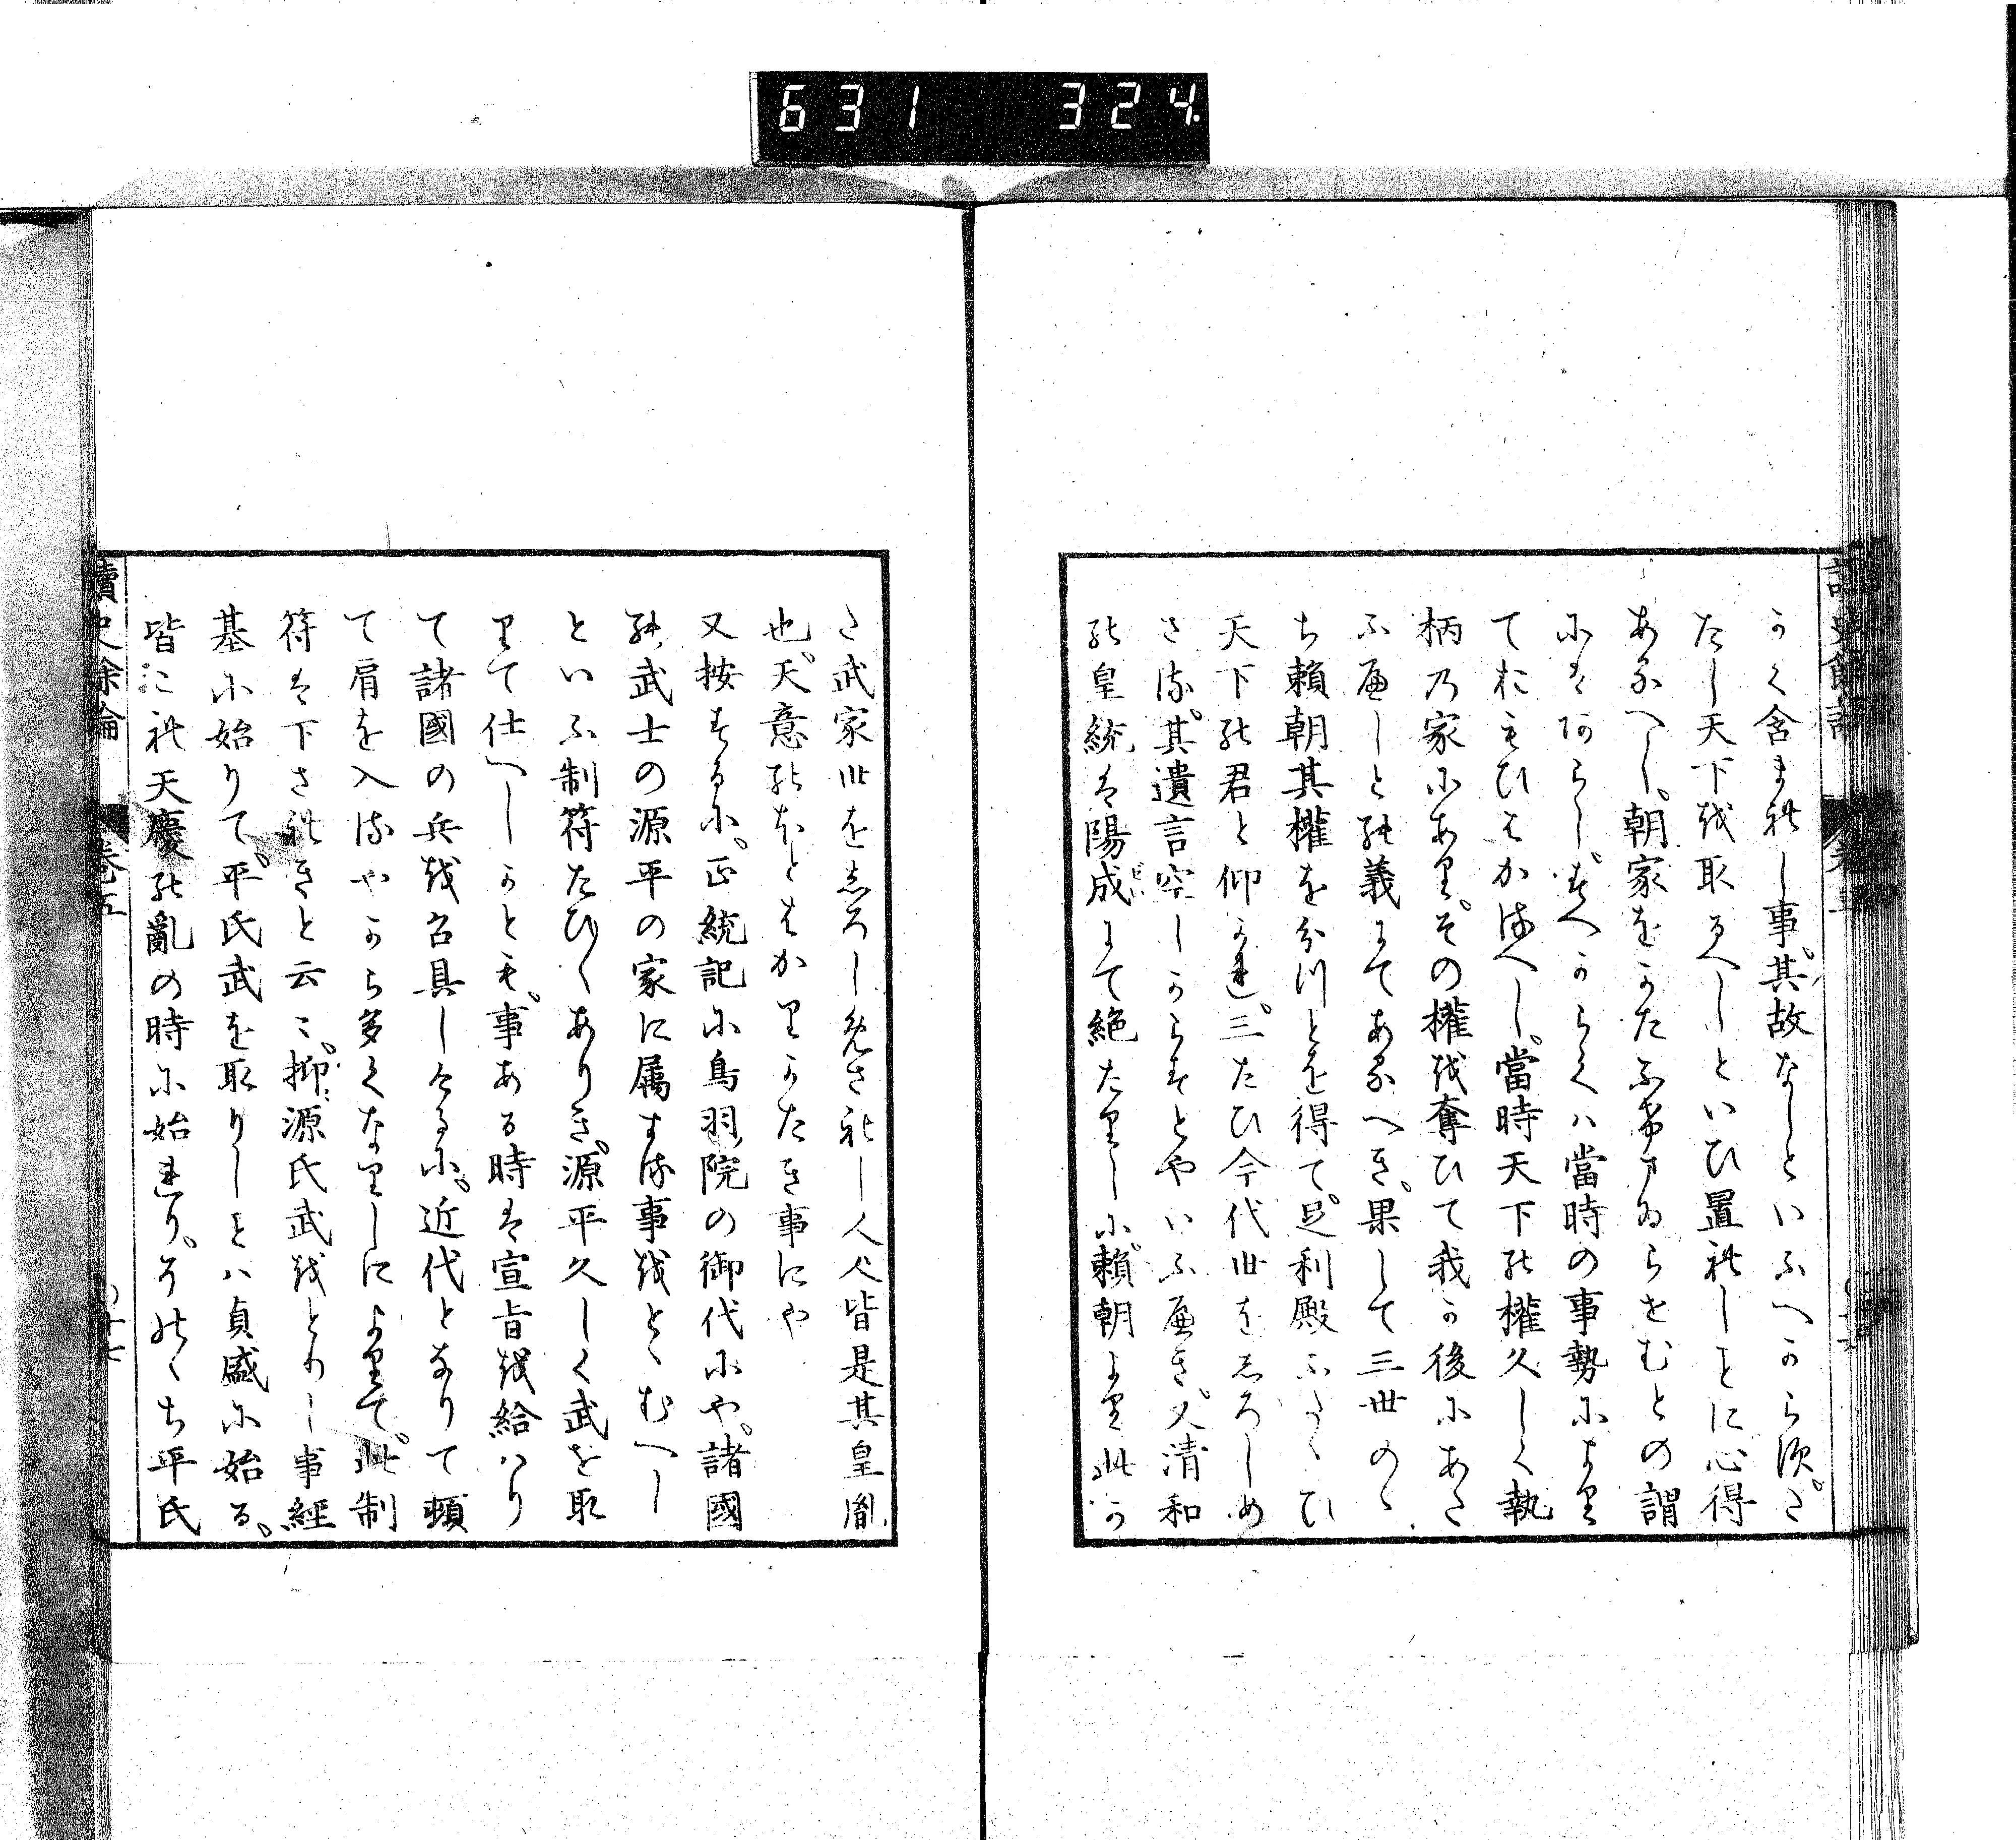 631 324
かく含まれし事其故なしといふへからすさ
たし天下を取るへしといひ置れしをに心得
あるへし朝家をかたふけまゐらせむとの謂
にはあらしすへからくハ當時の事勢により
ておもひはかるへし當時天下の權久しく執
柄の家にありその權を奪ひて我か後にあた
ふへしとの義にてあるへき果して三世のゝ
ち賴朝其權を分つとを得て足利殿ふたゝひ
天下の君と仰かれ三たひ今代世をしろしめ
さる其遺言空しからすとやいふへき又清和
の皇統は陽成にて絶たりしに賴朝より此か
た武家世をしろしめされし人々皆是其皇胤
也天意のほとはかりかたき事にや
又按するに正統記に鳥羽院の御代にや諸國
の武士の源平の家に属する事をとゝむへし
といふ制符たひ〱ありき源平久しく武を取
りて仕へしかとも事ある時は宣旨を給ハり
て諸國の兵を召具しけるに近代となりて頓
て肩を入るやから多くなりしによりて此制
符は下されきと云々抑源氏武をとりし事經
基に始りて平氏武を取りしとハ貞盛に始る
皆これ天慶の亂の時に始れりそのゝち平氏
讀史餘論 卷五 十七